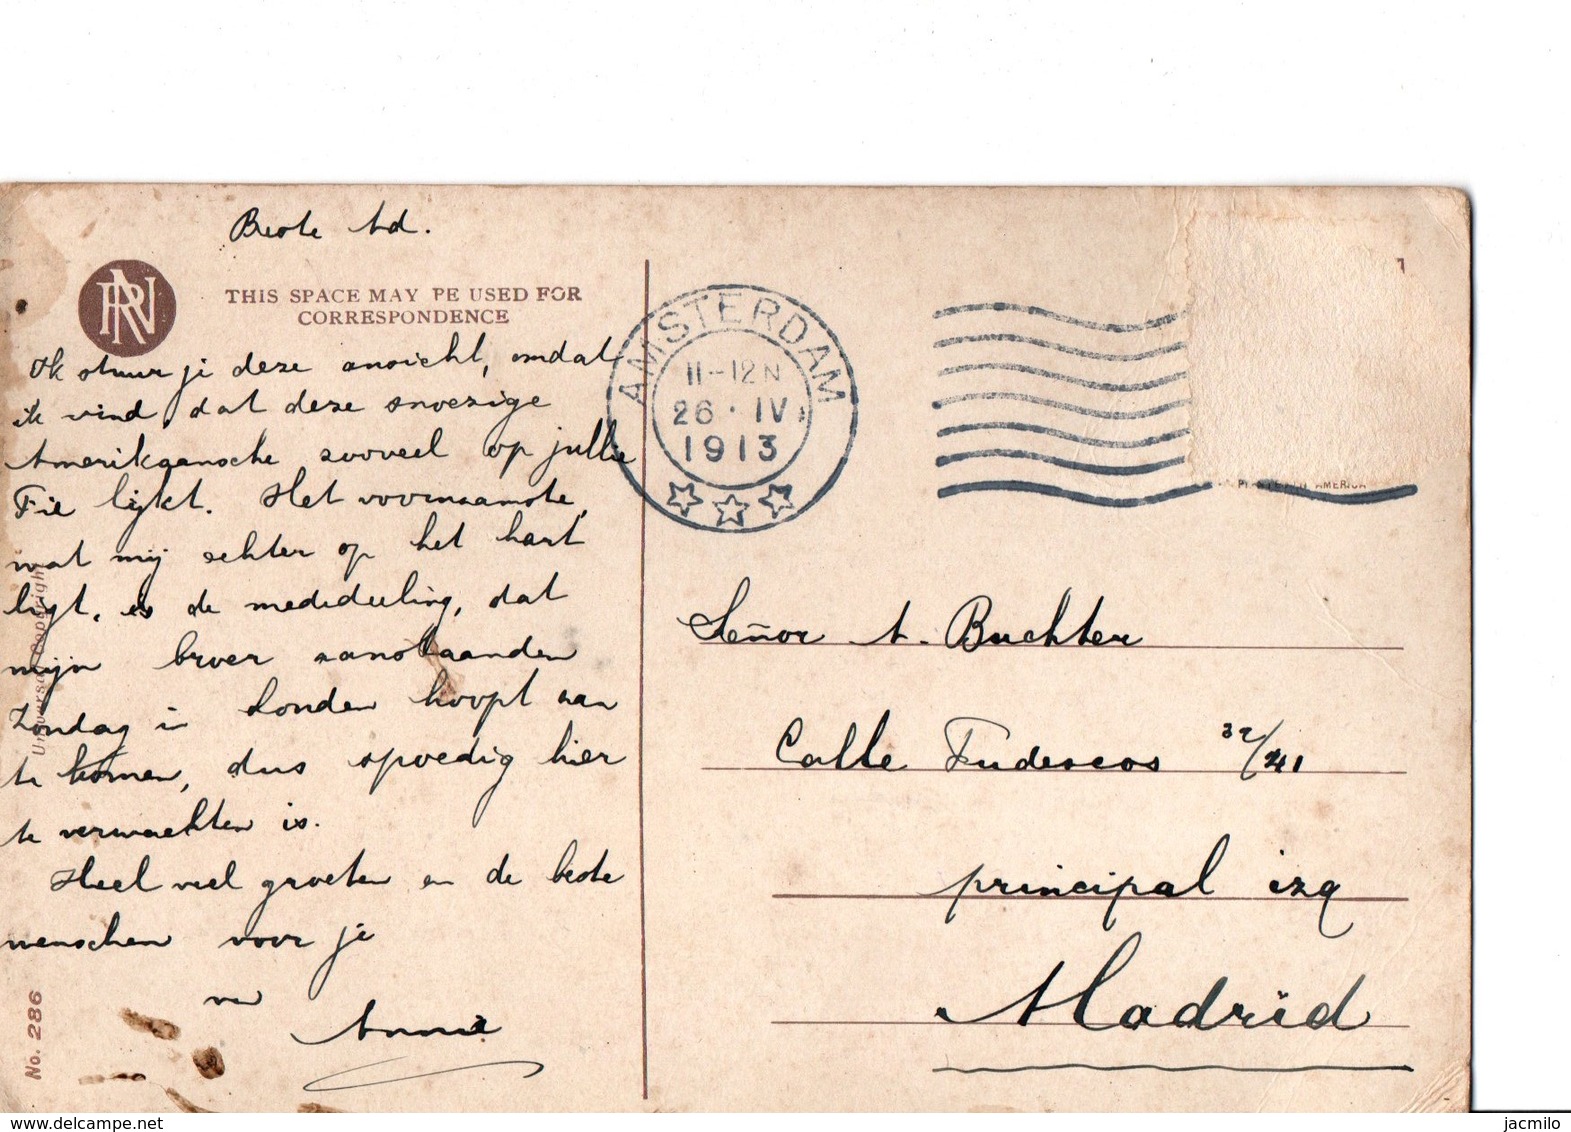 Beste Ad.
RN
THIS SPACE MAY BE USED FOR
CORRESPONDENCE
Ik stuur je deze ansicht, omdat
ik vind, dat deze snoezige
Amerikaansche zooveel op jullie
Fie lijkt. Het voornaamste,
wat mij echter op het hart
ligt, is de mededeeling, dat
mijn broer aanstaanden
Zondag in Londen hoopt aan
te komen, dus spoedig hier
te verwachten is.
Heel veel groeten en de beste
wenschen voor je
van
Annie
No. 286
Universal Copyright
AMSTERDAM
11-12N
26·IV
1913
AMERICA
Señor A. Buchter
Calle Tudescos 39/41
principal izq
Madrid
delcampe.net
jacmilo